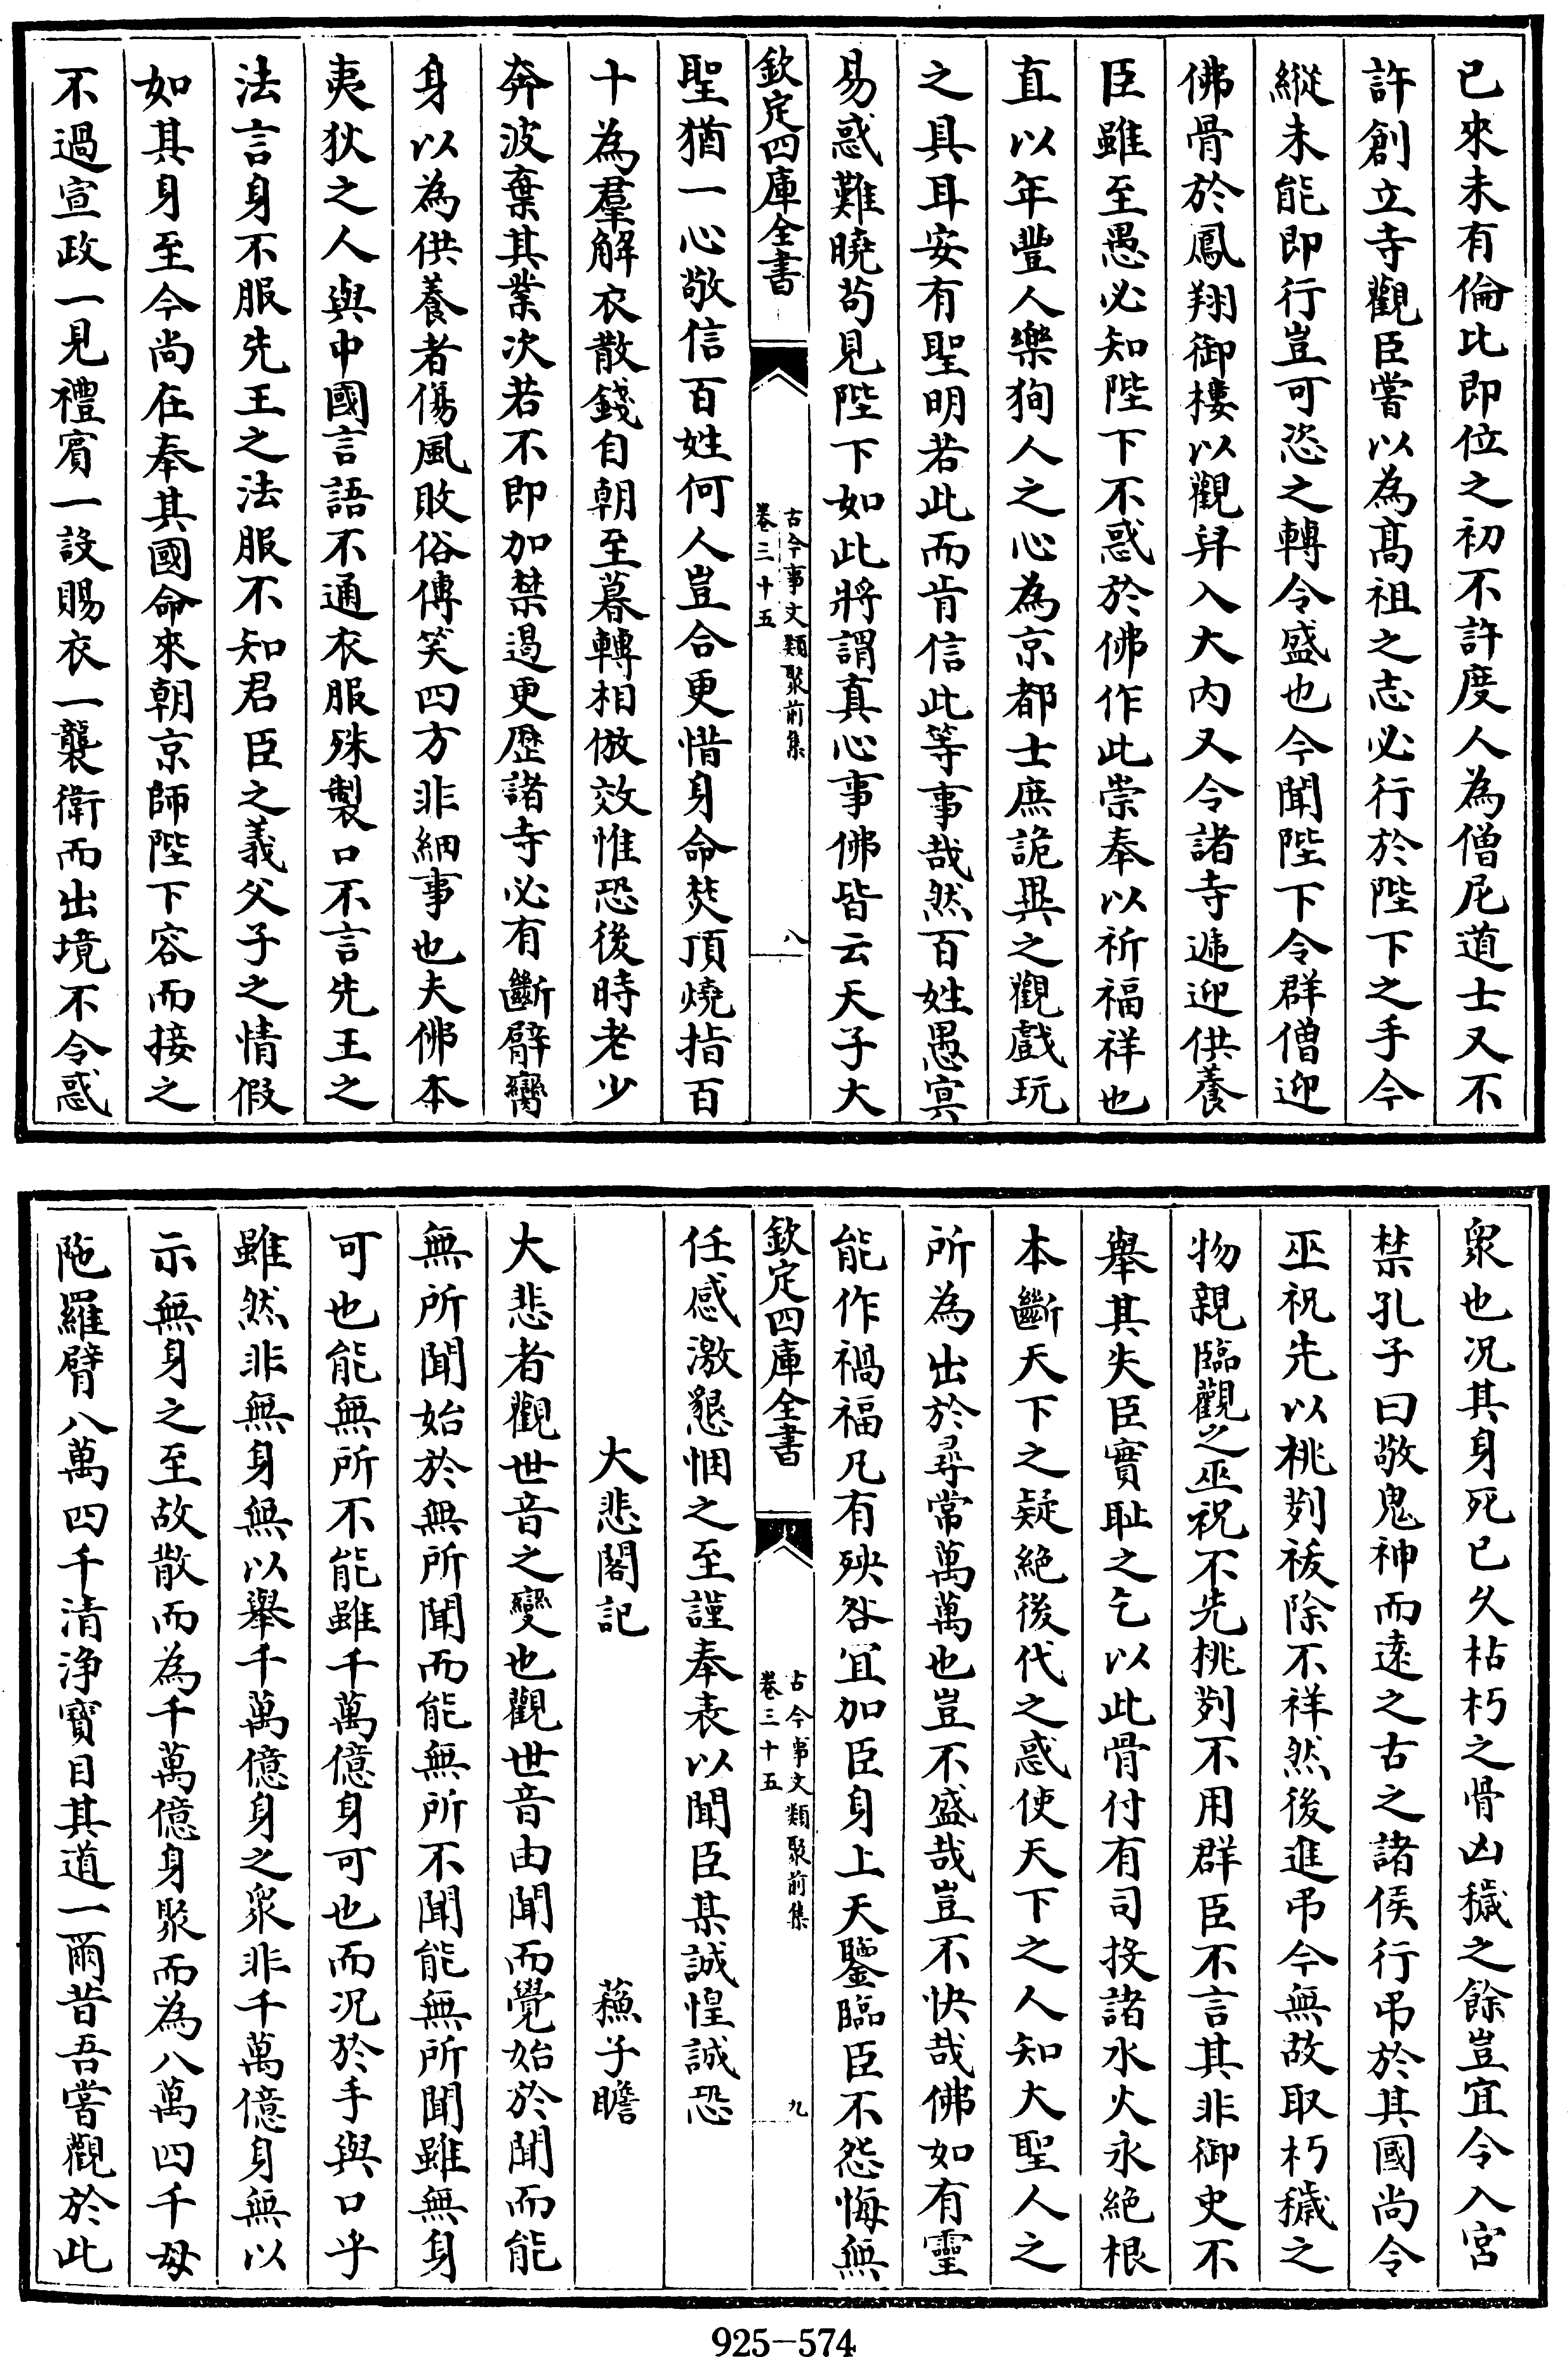 已來未有倫比即位之初不許度人為僧尼道士又不
許創立寺觀臣嘗以為髙祖之志必行於陛下之手今
縱未能即行豈可恣之轉令盛也今聞陛下令群僧迎
佛骨於鳳翔御樓以觀舁入大内又令諸寺遞迎供養
臣雖至愚必知陛下不惑於佛作此崇奉以祈福祥也
直以年豐人樂狥人之心為京都士庶詭異之觀戲玩
之具耳安有聖明若此而肯信此等事哉然百姓愚冥
易惑難曉苟見陛下如此將謂真心事佛皆云天子大
欽定四庫全書
古今事文類聚前集
卷三十五
八
聖猶一心敬信百姓何人豈合更惜身命焚頂燒指百
十為羣解衣散錢自朝至暮轉相倣效惟恐後時老少
奔波棄其業次若不即加禁遏更歴諸寺必有斷臂臠
身以為供養者傷風敗俗傳笑四方非細事也夫佛本
夷狄之人與中國言語不通衣服殊製口不言先王之
法言身不服先王之法服不知君臣之義父子之情假
如其身至今尚在奉其國命來朝京師陛下容而接之
不過宣政一見禮賓一設賜衣一襲衛而出境不令惑
衆也况其身死已久枯朽之骨凶穢之餘豈宜令入宮
禁孔子曰敬鬼神而逺之古之諸侯行弔於其國尚令
巫祝先以桃茢祓除不祥然後進弔今無故取朽穢之
物親臨觀之巫祝不先桃茢不用群臣不言其非御史不
舉其失臣實耻之乞以此骨付有司投諸水火永絶根
本斷天下之疑絶後代之惑使天下之人知大聖人之
所為出於尋常萬萬也豈不盛哉豈不快哉佛如有靈
能作禍福凡有殃咎宜加臣身上天鑒臨臣不怨悔無
欽定四庫全書
古今事文類聚前集
卷三十五
九
任感激懇悃之至謹奉表以聞臣某誠惶誠恐
大悲閣記 蘓子瞻
大悲者觀世音之變也觀世音由聞而覺始於聞而能
無所聞始於無所聞而能無所不聞能無所聞雖無身
可也能無所不能雖千萬億身可也而况於手與口乎
雖然非無身無以舉千萬億身之衆非千萬億身無以
示無身之至故散而為千萬億身聚而為八萬四千母
陁羅臂八萬四千清浄寳目其道一爾昔吾嘗觀於此
925-574